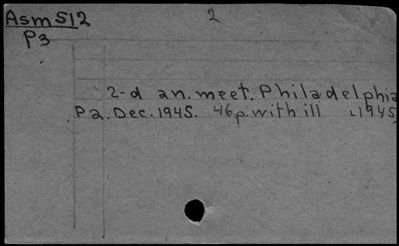 Asm512 2
P3
2-d an. meet. Philadelphia
Pa. Dec. 1945. 46p. with ill 1945